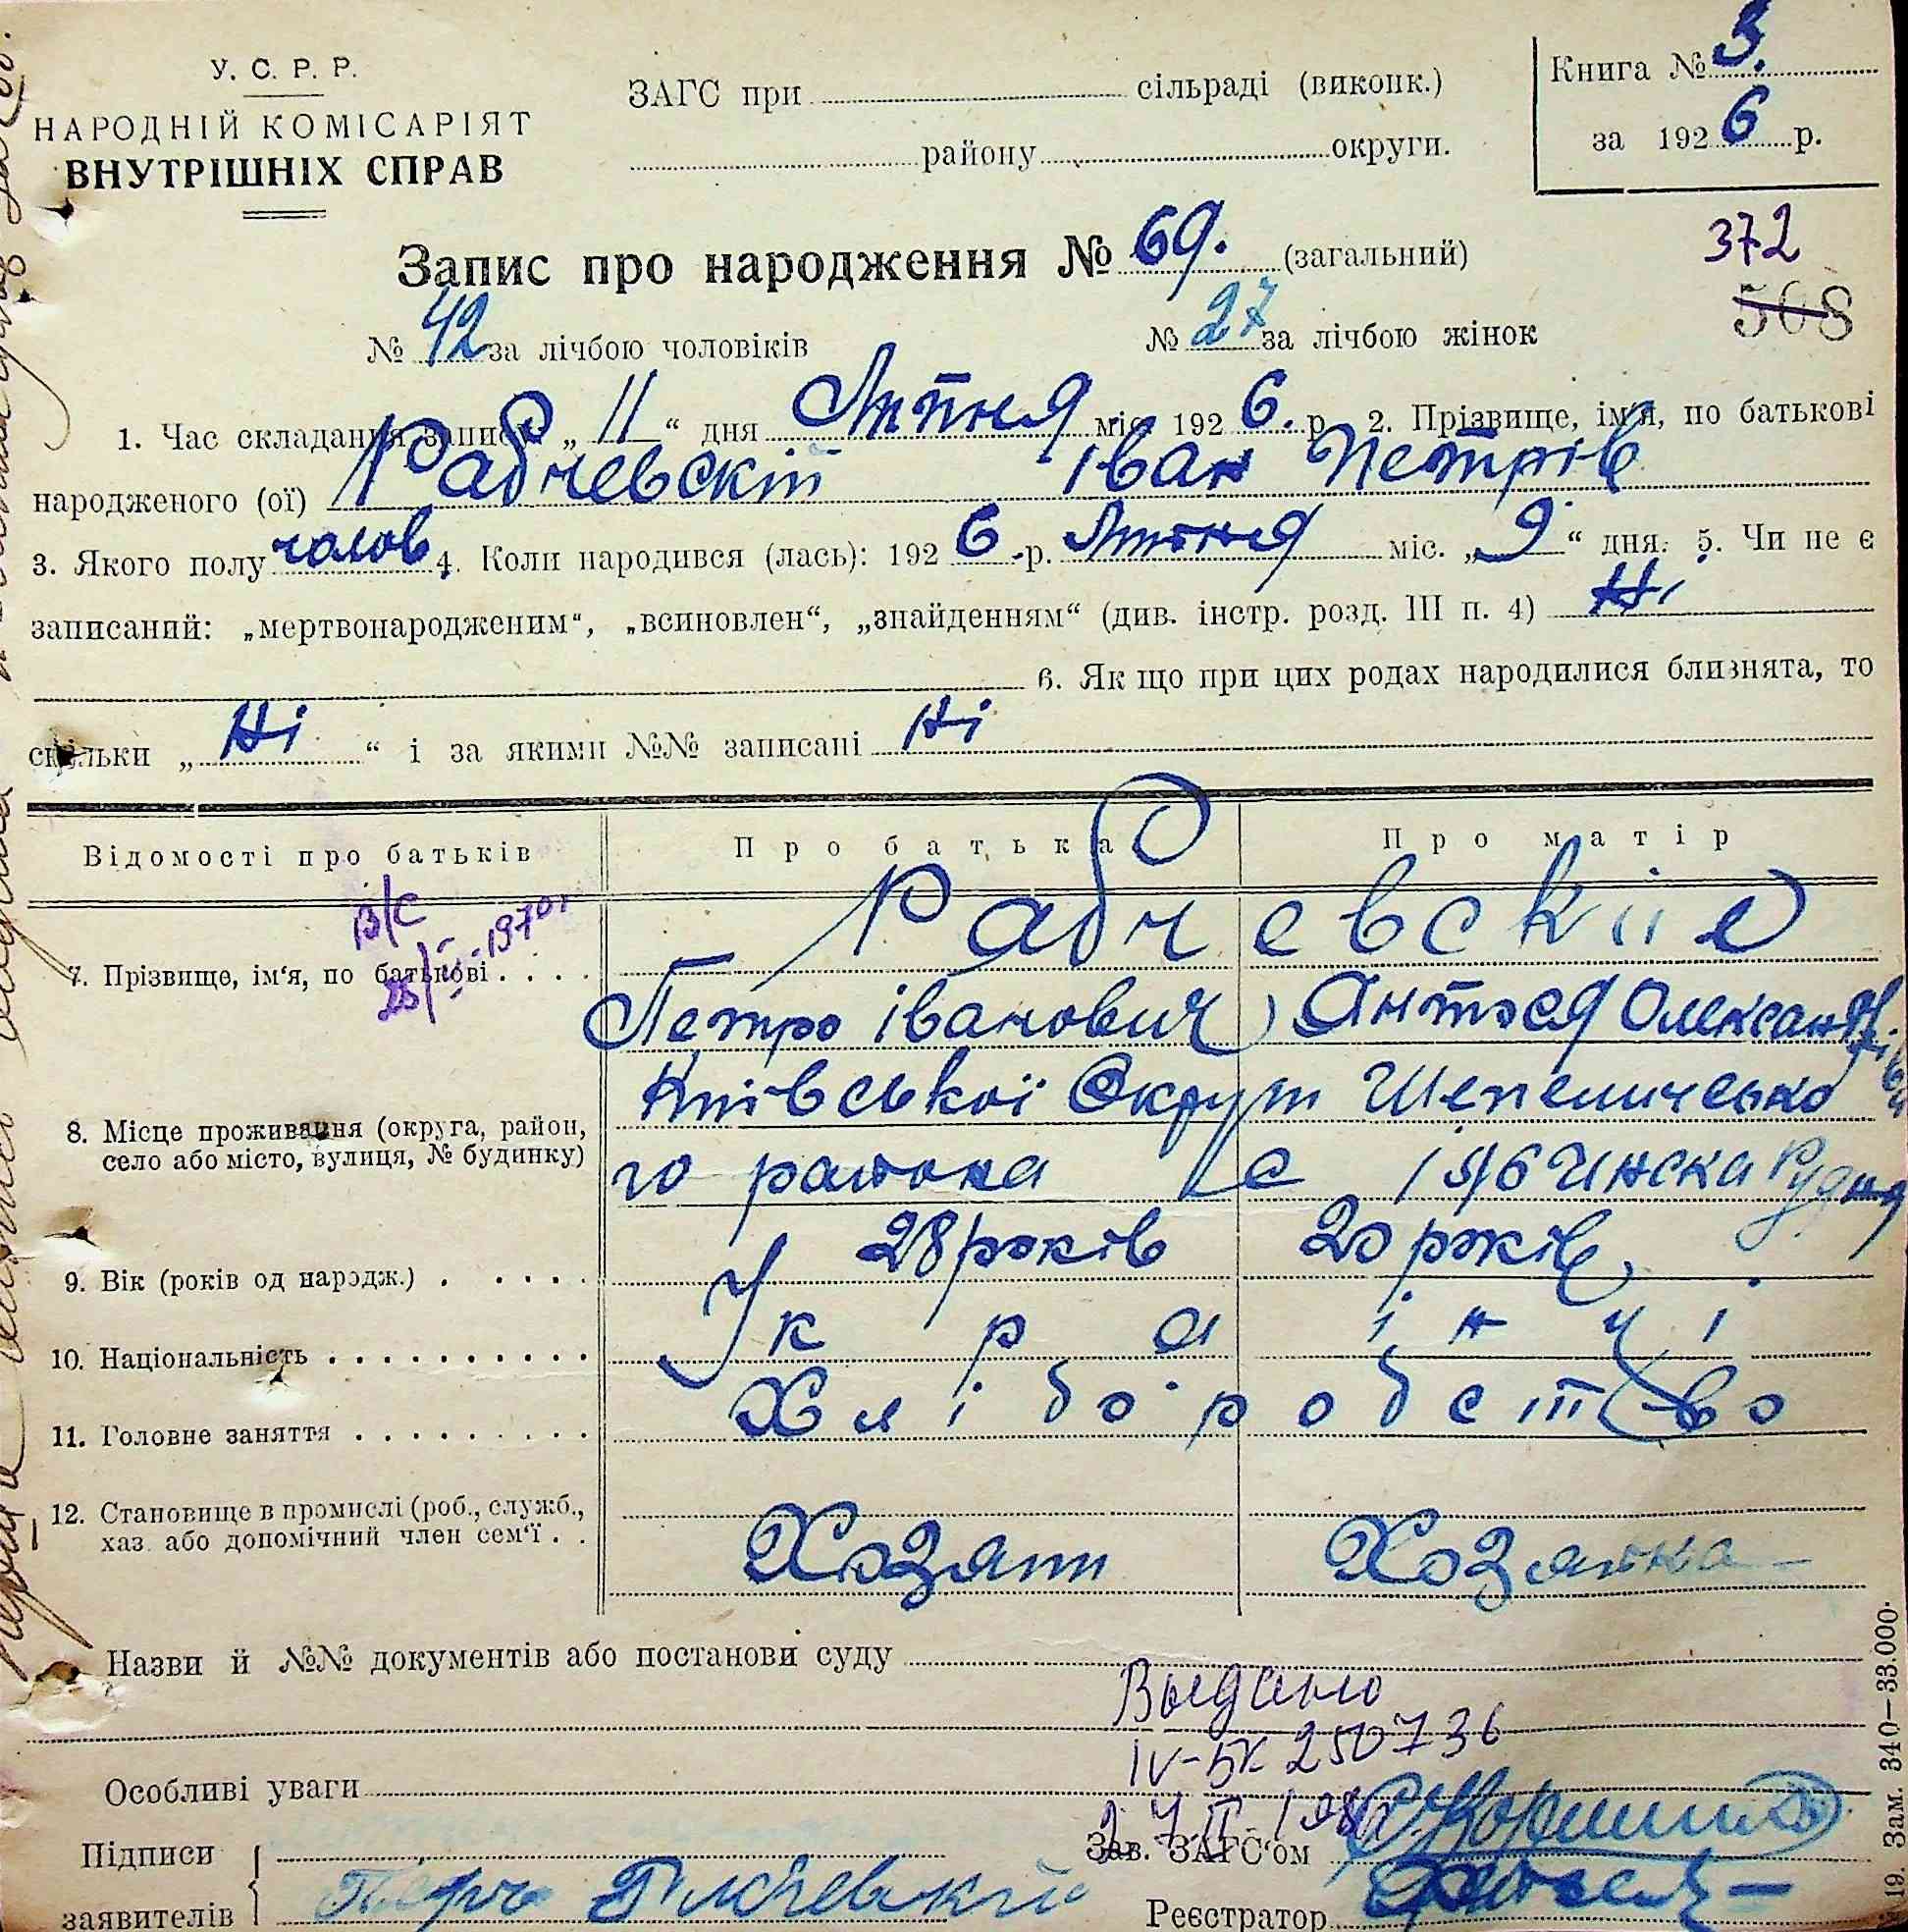 У. С. Р. Р.
НАРОДНІЙ КОМІСАРІЯТ
ВНУТРІШНІХ СПРАВ
ЗАГС при сільраді (виконк.)
району округи.
Книга № 3.
за 1926 р.
372
508
Запис про народження № 69. (загальний)
№ 42 за лічбою чоловіків № 27 за лічбою жінок
1. Час складання запису „11“ дня Липня міс. 1926. р. 2. Прізвище, ім'я, по батькові
народженого (ої) Рабчевскій Іван Петрів
3. Якого полу чолов 4. Коли народився (лась): 1926 р. Липня міс. „9“ дня. 5. Чи не є
записаний: „мертвонародженим“, „всиновлен“, „знайденням“ (див. інстр. розд. III п. 4) Ні
6. Як що при цих родах народилися близнята, то
скільки „Ні“ і за якими №№ записані Ні
Відомості про батьків Про батька Про матір
В/С
7. Прізвище, ім'я, по батькові . . . . Рабчевскіе
Петро Іванович Антося Олександрівна
8. Місце проживання (округа, район,
село або місто, вулиця, № будинку)
Київської Округи Шепеличсько
го района с Рудня
9. Вік (років од народж.) . . . . . 28 років 20 років
10. Національність . . . . . . . . . . Українці
11. Головне заняття . . . . . . . . . Хліборобство
12. Становище в промислі (роб., служб.,
хаз. або допомічний член сем'ї . .
Хозяин Хозяйка
Назви й №№ документів або постанови суду
Выдано
IV-БК 250736
Особливі уваги
Підписи
заявителів
Петро Рабчевский
Зав. ЗАГС'ом
Реєстратор
19. Зам. 340—33.000.